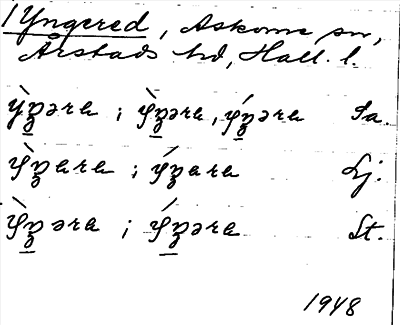 1 Yngered, Askome sn,
Årstads hd, Hall. l.
ỳŋəra ; ỳŋəra, ýŋəra Sa.
ỳŋara ; ýŋara Lj.
ỳŋəra ; ýŋəra St.
1948